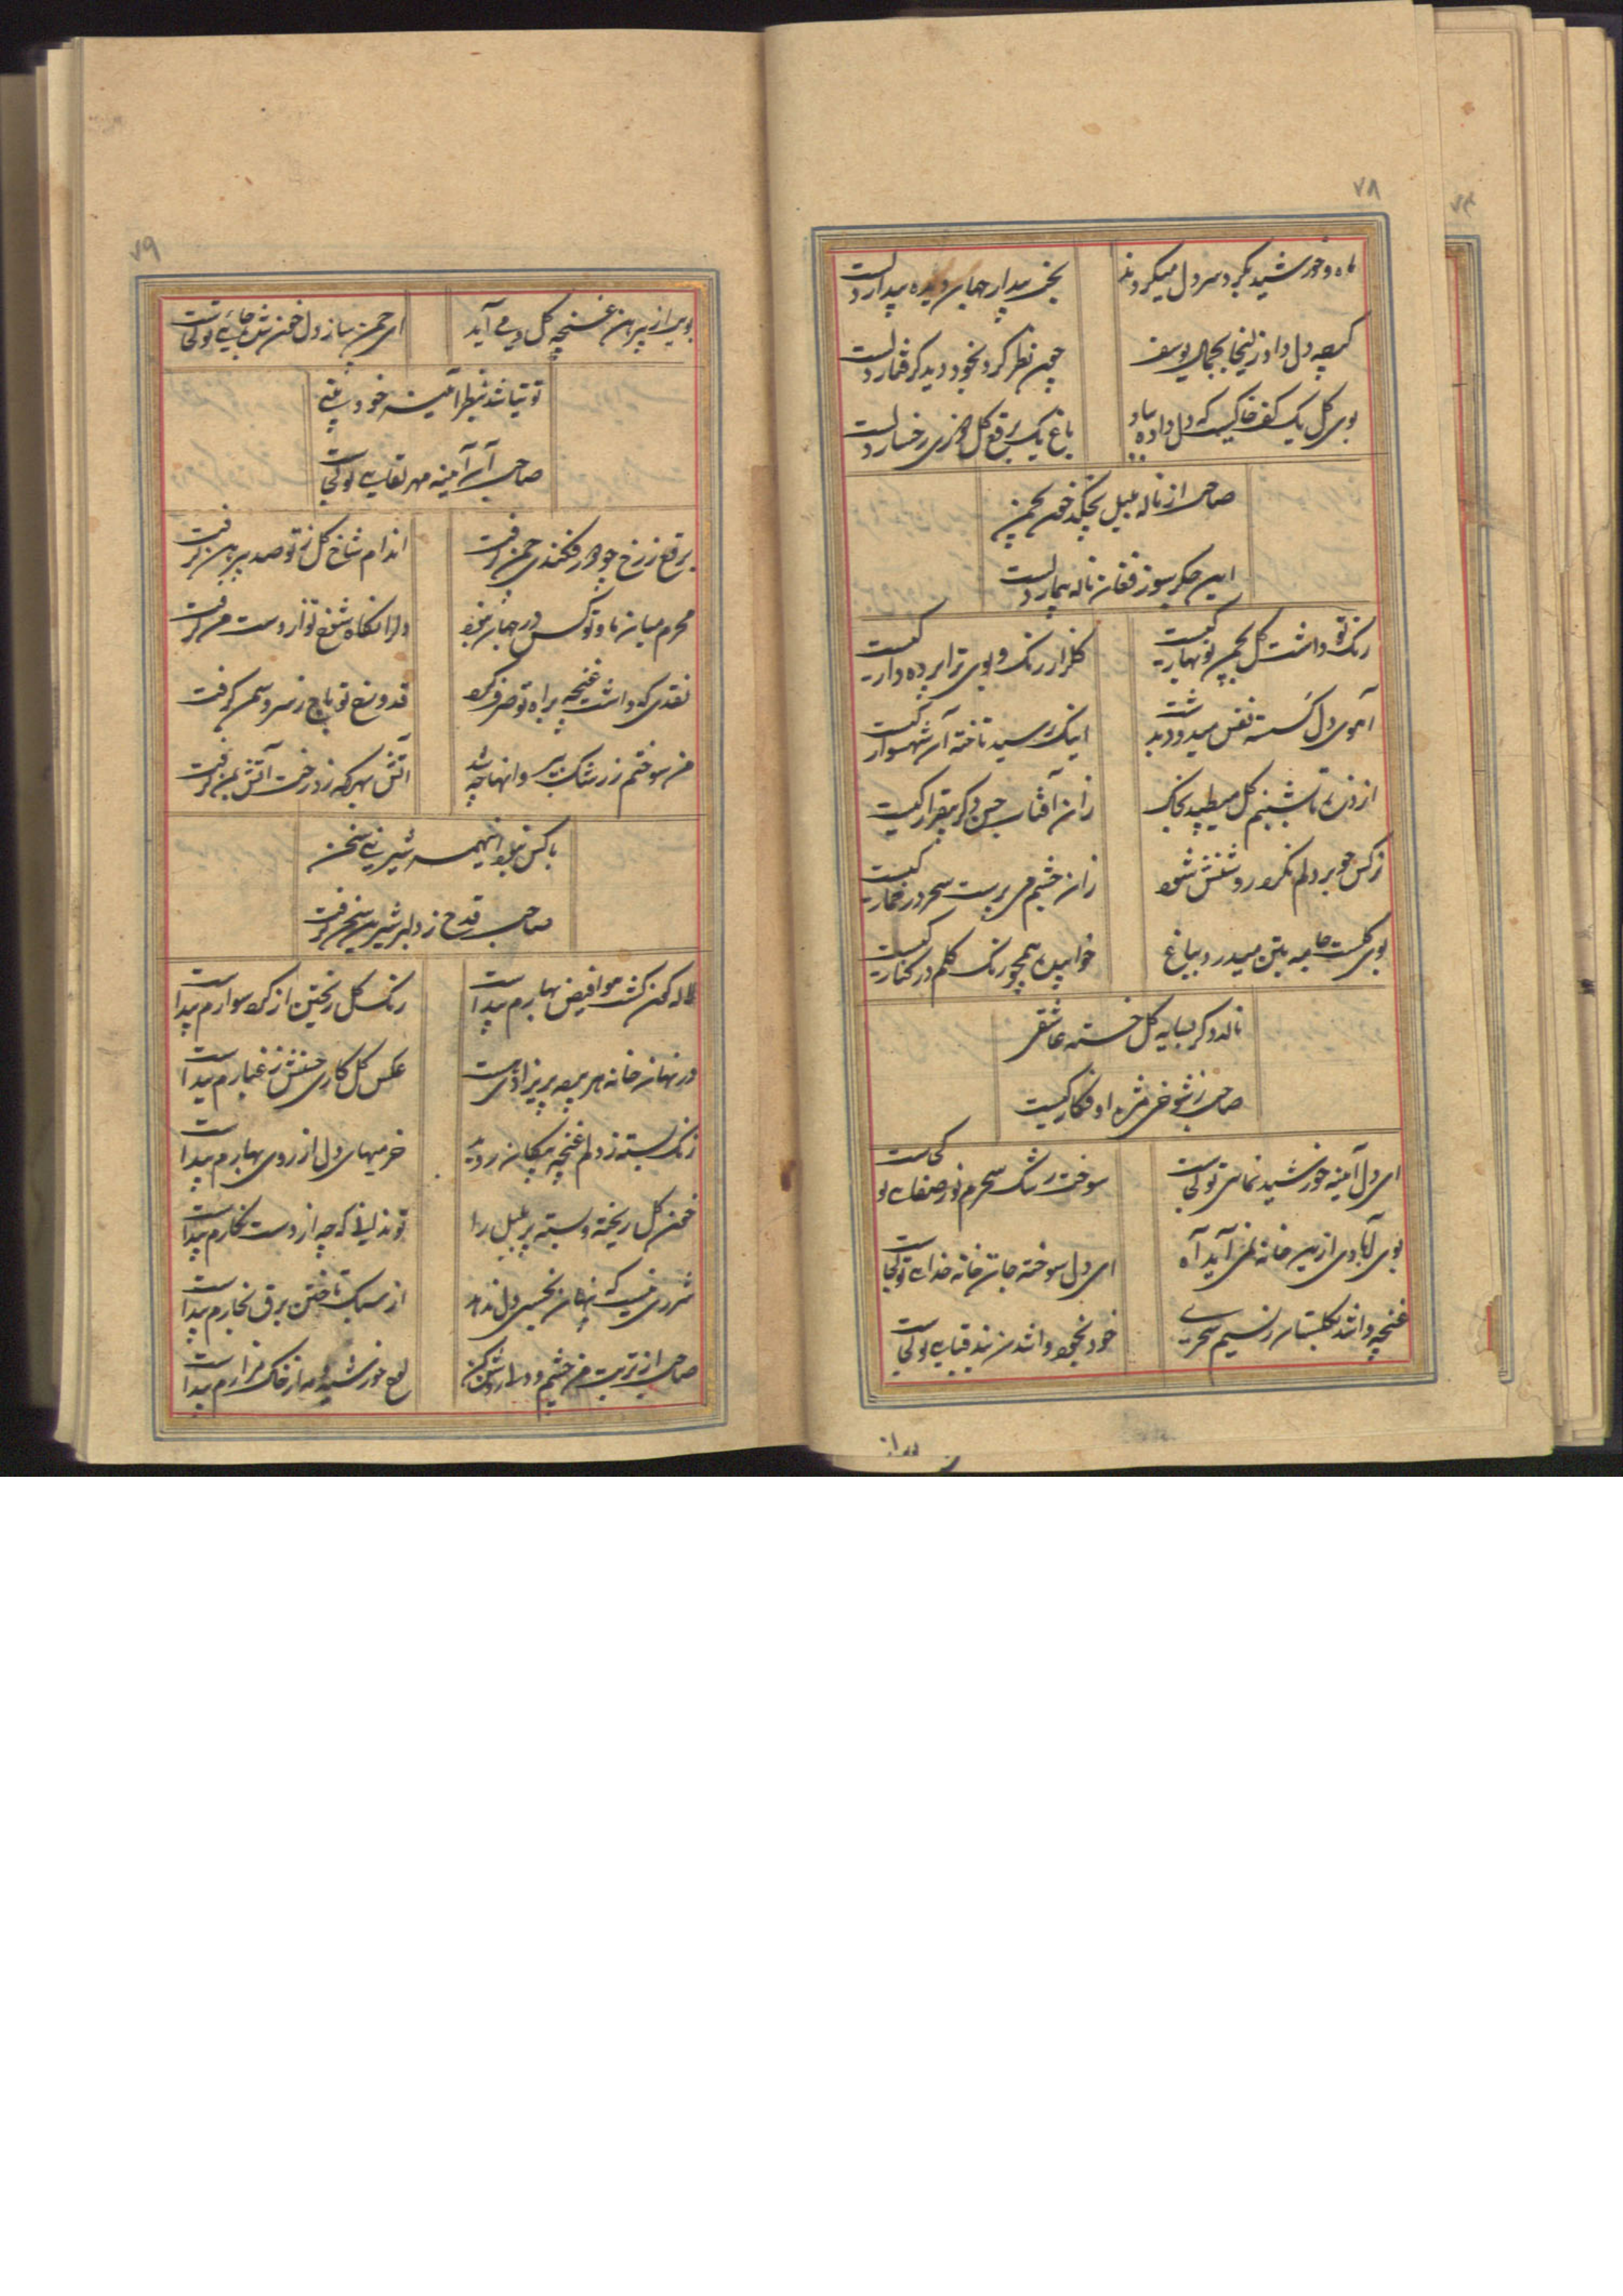 ۷۸
ماه و خورشید بگرد سر دل میگردند
بخت بیدار جهان دیده بیدار دلست
گرچه دل داد زلیخا بجمال یوسف
چون نظر کرد بخود دید گرفتار دلست
بوی گل یک کف خاکیست که دل داده بباد
باغ یک برقع گل رخسار دلست
صاحب از ناله بلبل بچکد خون بچمن
این جگرسوز فغان ناله بیمار دلست
رنگ تو داشت گل بچمن نوبهار کیست
گلزار رنگ و بوی ترا پرده دار کیست
آهوی دل گسسته نفس میدود بدشت
اینک رسید تاخته آن شهسوار کیست
از ذره تا بشبنم گل میطپد بخاک
زان آفتاب حسن دگر بیقرار کیست
نرگس چو بر دلم نگرد روشنش شود
زان چشم می پرست سحر در خمار کیست
بوی گلست جامه بتن میدرد بباغ
خوابیده همچو رنگ گلم در کنار کیست
نالد دگر بسایه گل خسته عاشقی
صاحب ز شوخی مژه او فکار کیست
ای دل آینه خورشید نمای تو کجاست
سوخت رشک سحرم نور صفای تو کجاست
بوی آبادی ازین خانه نمی آید آه
ای دل سوخته جان خانه خدای تو کجاست
غنچه وا شد بگلستان ز نسیم سحری
خود بخود وا شدن بند قبای تو کجاست
۷۹
بوی از پیرهن غنچه گل دی می آید
ای چمن ساز دل خون شده جای تو کجاست
توتیا شد بنظر آینه خود بینی
صاحب آن آینه مهر لقای تو کجاست
برقع ز رخ چو در فکندی چمن گرفت
اندام شاخ گل ز تو صد پیرهن گرفت
محرم میان ما و تو کس در جهان نبود
دل را نگاه شوخ تو از دست من گرفت
نقدی که داشت غنچه براه تو صرف کرد
قد و رخ تو باج ز سرو و سمن گرفت
من سوختم ز رشک بتر وانها چه شد
آتش بهر که زد رخت آتش بمن گرفت
با کس نبود اینهمه شیرینی سخن
صاحب قدح ز دلبر شیرین سخن گرفت
لاله گون گشت هوا فیض بهارم پیداست
رنگ گل ریختن از گرد سوارم پیداست
در نهانخانه هر بیضه پریزادی هست
عکس گل کاری حسنش ز غبارم پیداست
زنگ بسته ز دلم غنچه پیکان روید
خرمیهای دل از روی بهارم پیداست
خون گل ریخته و بسته پر بلبل را
تو ندانی که چه از دست نگارم پیداست
شرری نیست که پنهان بخسی دل ندهد
از سبک تاختن برق نجارم پیداست
صاحب از تربت من چشم و دل روشن کن
لمع خورشید و مه از خاک مزارم پیداست